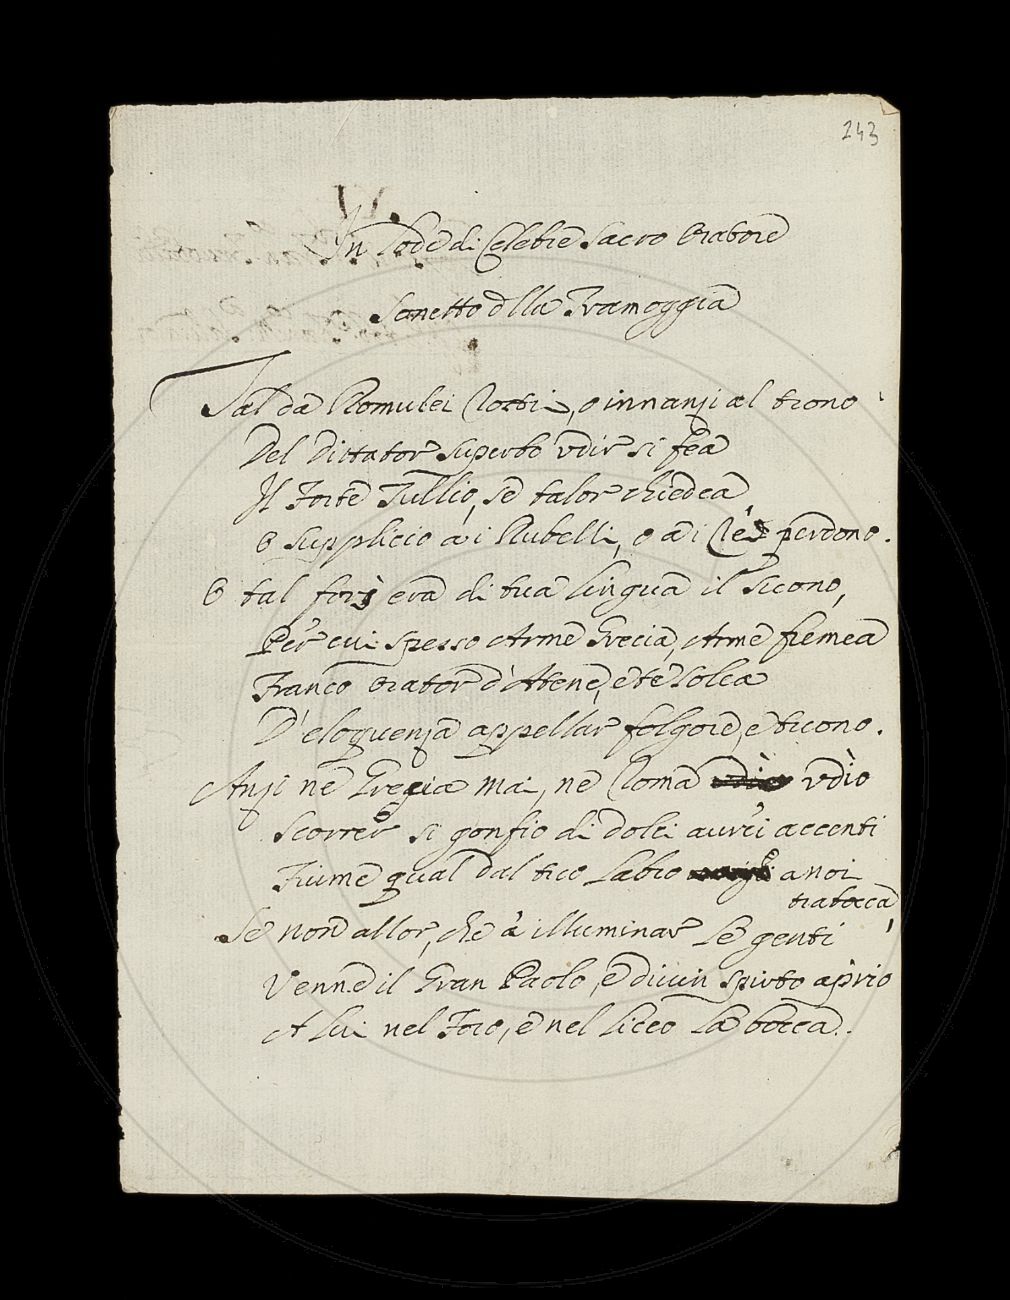 243
VI.
In lode di Celebre Sacro Oratore
Sonetto dlla Tramoggia
Tal da Romulei Rostri, o innanzi al trono
Del Dittator superbo udir si fea
Il Forte Tullio, se talor chiedea
O supplicio a i Rubelli, o a i Re perdono.
O tal fors era di tua lingua il suono,
Per cui spesso Arme Grecia, Arme fremea
Franco Orator d'Atene, e te solea
D'eloquenza appellar folgore, e tuono.
Anzi ne Grecia mai, ne Roma udìo
Scorrer si gonfio di dolci aurei accenti
Fiume qual dal tuo labro a noi
trabocca,
Se non allor, che à illuminar le genti
Venne il Gran Paolo, e divin spirto aprio
A lui nel Foro, e nel liceo la bocca.